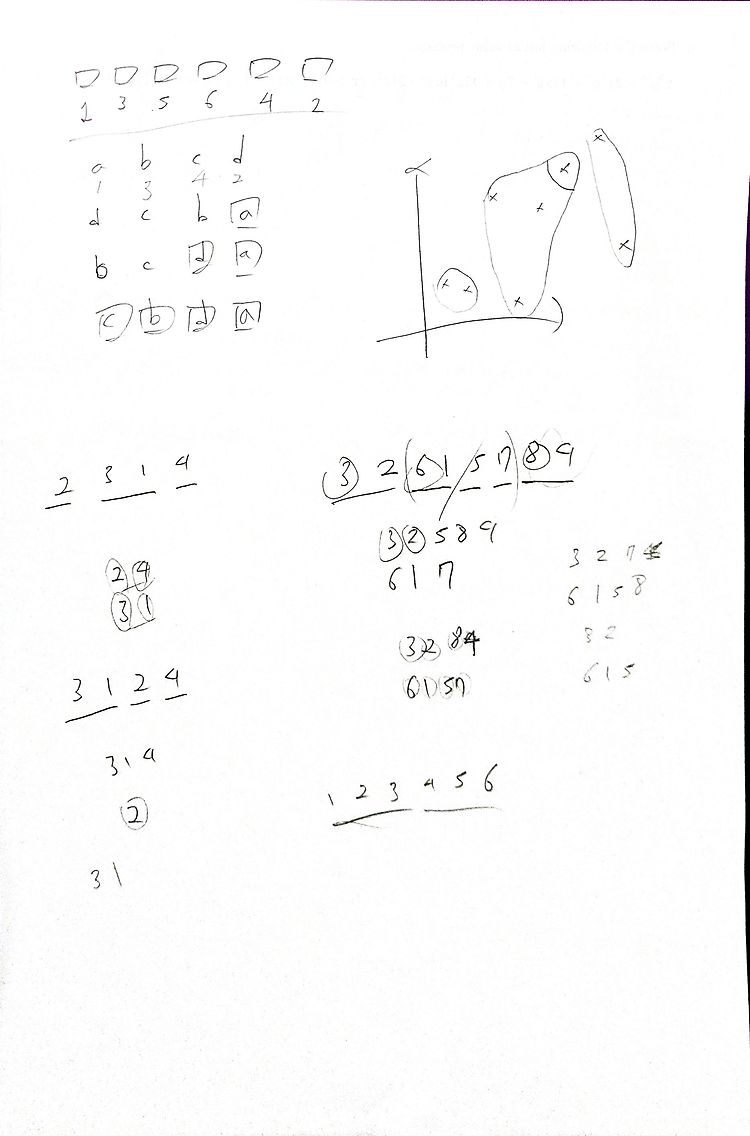 1 3 5 6 4 2
a b c d
1 3 4 2
d c b a
b c d a
c b d a
2 3 1 4
3 2 6 1 5 7 8 9
2 4
3 1
3 2 5 8 9
6 1 7
3 2 7
6 1 5 8
3 2 8
6 1 5 7
3 2
6 1 5
3 1 2 4
3 1 4
2
1 2 3 4 5 6
3 1